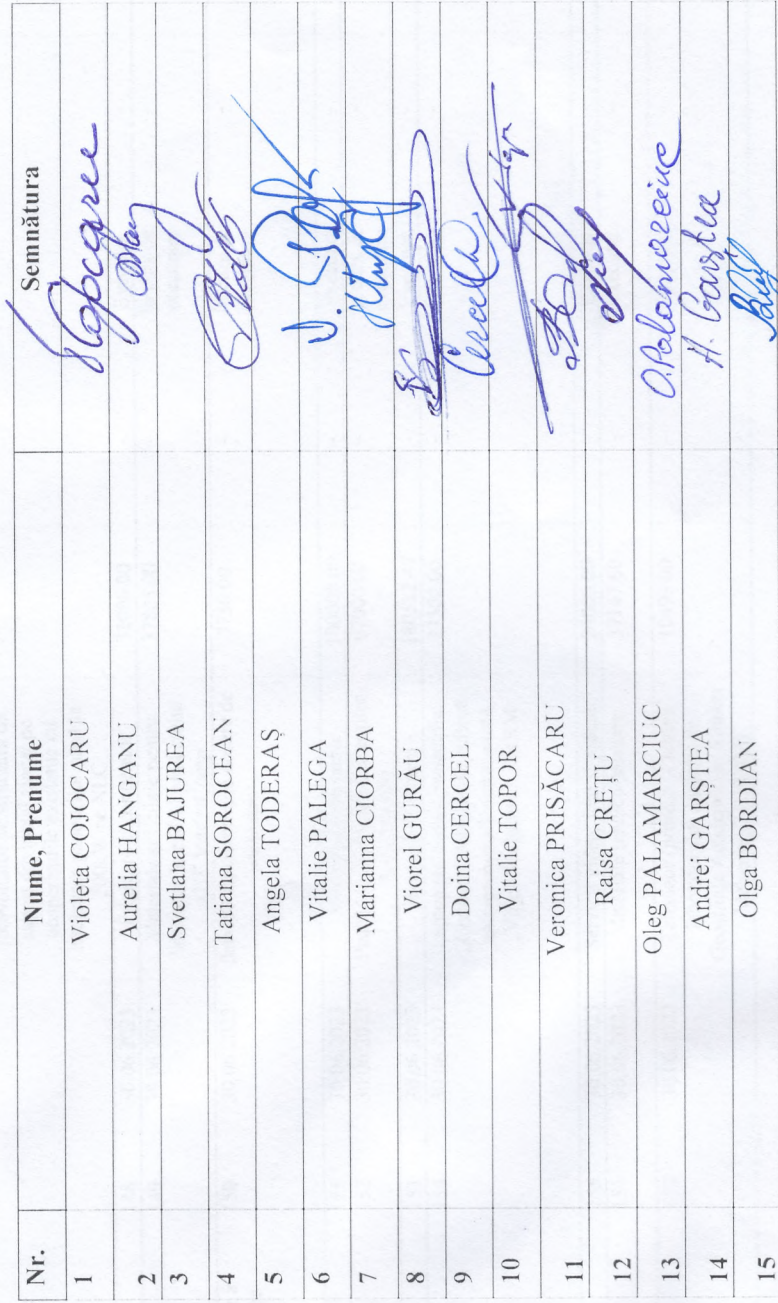 Nr. Nume, Prenume Semnătura
1 Violeta COJOCARU
2 Aurelia HANGANU
3 Svetlana BAJUREA
4 Tatiana SOROCEAN
5 Angela TODERAȘ
6 Vitalie PALEGA
7 Marianna CIORBA
8 Viorel GURĂU
9 Doina CERCEL
10 Vitalie TOPOR
11 Veronica PRISĂCARU
12 Raisa CREȚU
13 Oleg PALAMARCIUC
14 Andrei GARȘTEA
15 Olga BORDIAN